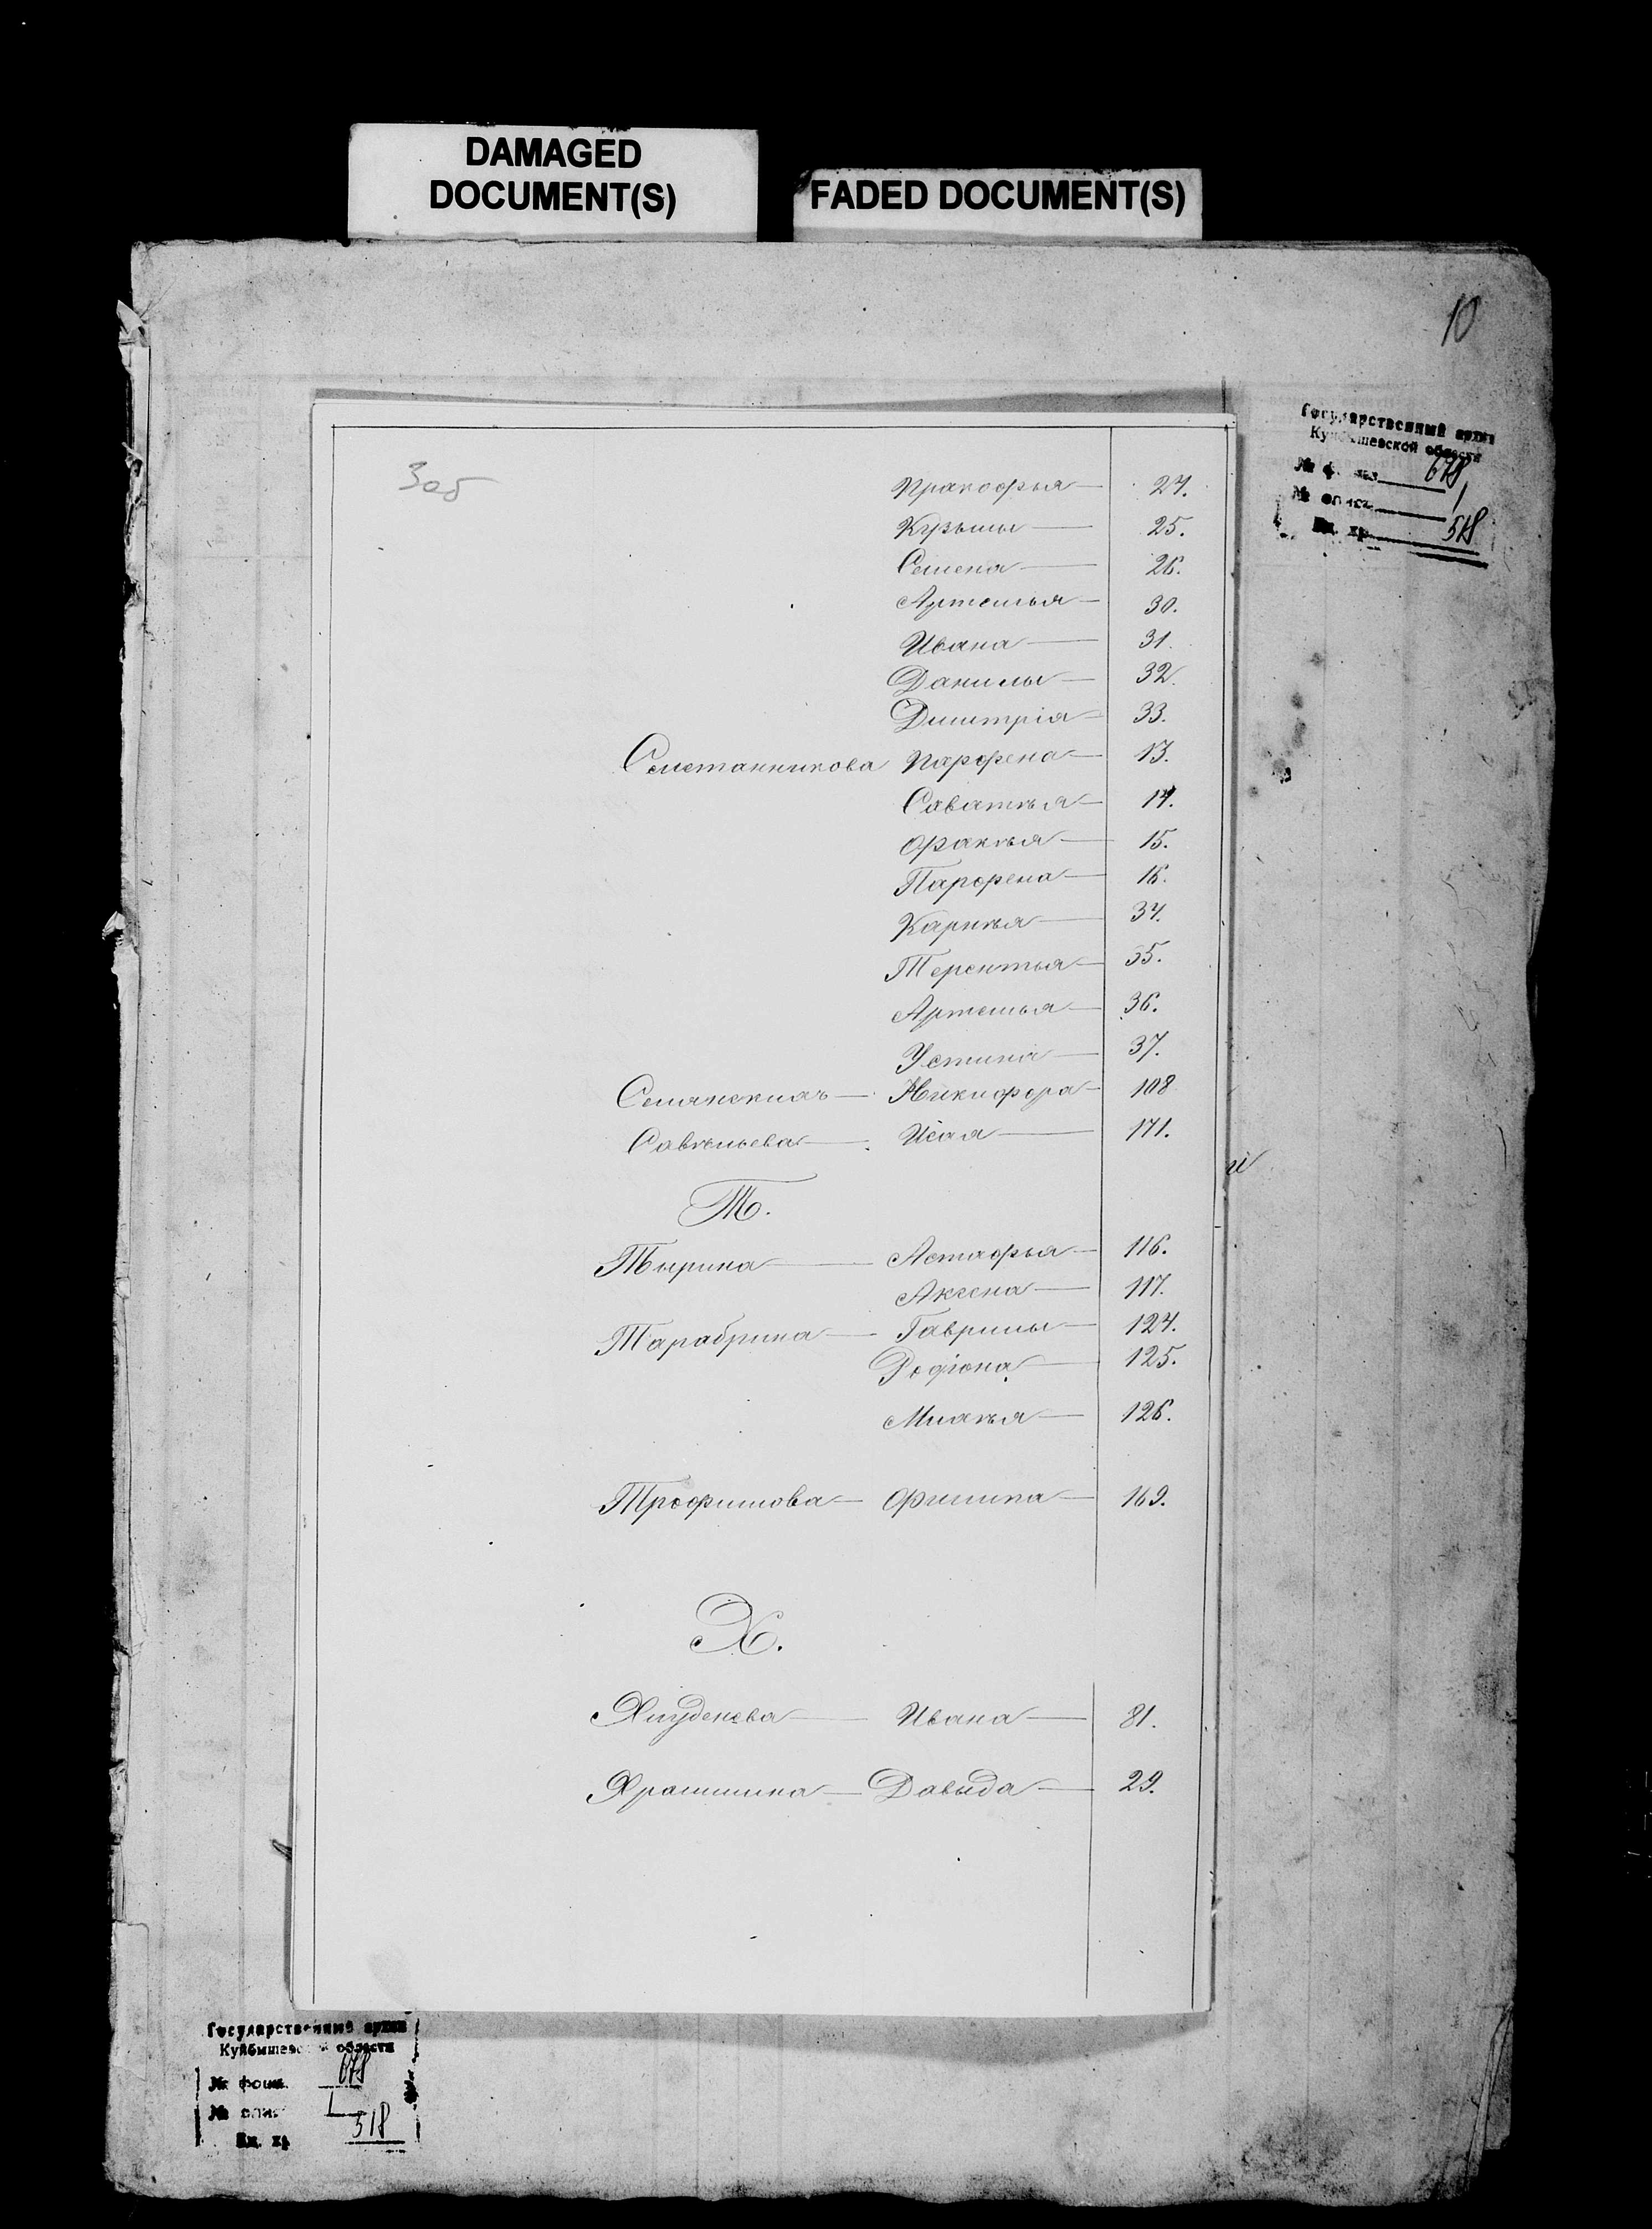 DAMAGED
DOCUMENT(S)
FADED DOCUMENT(S)
10
Государственный архив
Куйбышевской области
№ фонда 678
№ описи 1
Ед. хр. 518
3об
Пракофья — 24.
Кузьмы — 25.
Семена — 26.
Артемья — 30.
Ивана — 31.
Данилы — 32.
Дмитрія — 33.
Сметанникова Парфена — 13.
Саватѣя — 14.
Фракѣя — 15.
Парфена — 16.
Карпѣя — 34.
Терентья — 35.
Артемья — 36.
Устина — 37.
Никифора — 108
Савѣльева — Исая — 171.
Т.
Тырина — Астафья — 116.
Аксена — 117.
Тарабрина — Гаврилы — 124.
Родіона — 125.
Михѣя — 126.
Трофимова — Филипа — 169.
Х.
Хлуденева — Ивана — 81.
Храмшина — Давыда — 29.
Государственный архив
Куйбышевской области
№ фонд. 678
№ опис. 1
Ед. хр. 518